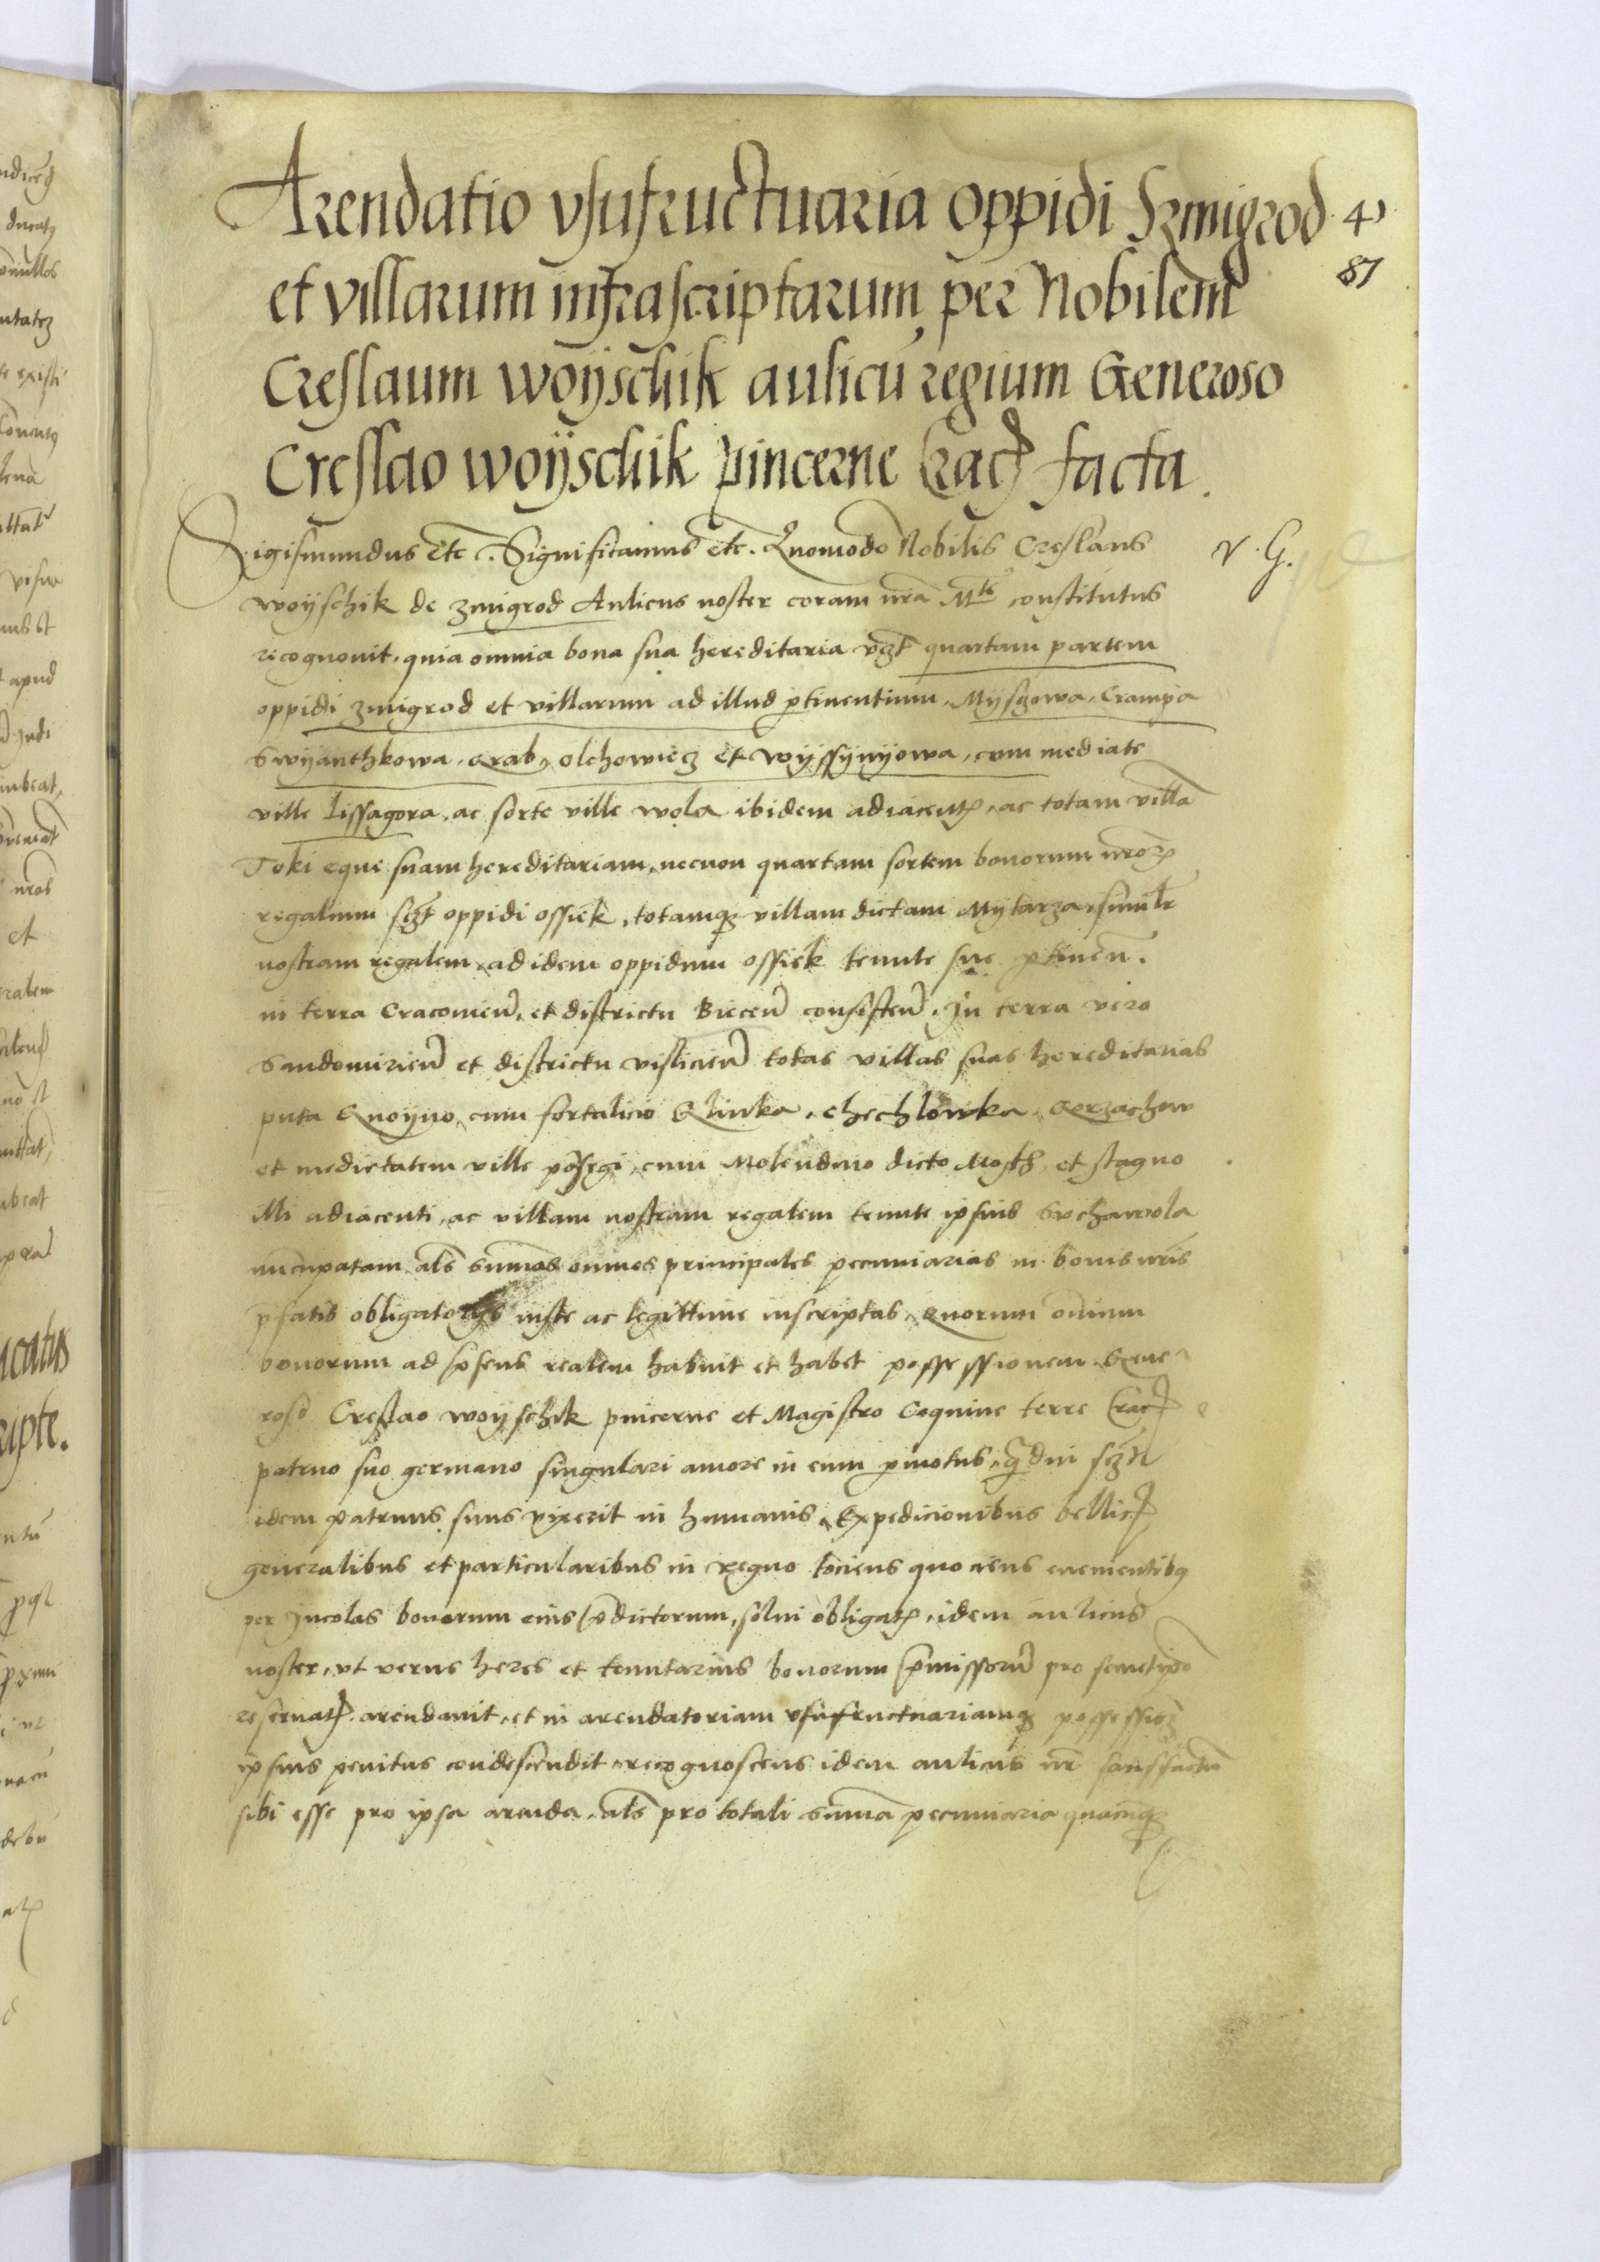 Arendatio vsufructuaria oppidi Szmigrod
41
87
et villarum infrascriptarum per Nobilem
Creslaum woÿschik aulicū regium Generoso
Creslao woÿschik pincerne Crac̄ facta.
Sigismundus etc. Significamus etc. Quomodo Nobilis Creslaus
V. G.
woÿschik de zmigrod Aulicus noster coram nrā Mte constitutus
recognouit, quia omnia bona sua hereditaria vꝫt quartam partem
oppidi zmigrod et villarum ad illud ꝑtinentium, Mÿsczowa, Crampa
Swÿanthkowa, Grab, olchowiecz et woÿssÿnÿowa, cum mediate
ville Lissagora, ac sorte ville wola ibidem adiacent̄, ac totam villā
Toki eque suam hereditariam, necnon quartam sortem bonorum nr̄oꝝ
regalium scꝫt oppidi ossiek, totamqꝫ villam dictam Mÿtarza, simil̄r
nostram regalem, ad idem oppidum ossiek tenute sue ꝑtinen̄.
in terra Cracouien̄, et districtu Biecen̄ consisten̄. In terra vero
Sandomirien̄ et districtu vislicien̄ totas villas suas hereditarias
puta Gnoÿno, cum fortalicio Glinka, chechlowka, Gerzachow
et medietatem ville, cum Molendino dicto Mosth, et stagno
illi adiacenti, ac villam nostram regalem tenute ipsius Suchawola
nuncupatam, als̄ sum̄as omnes principales pecuniarias in bonis nr̄is
pfatis obligatorÿs iuste ac legittime inscriptas, Quorum omnium
bonorum ad p̄sens realem habuit et habet possessionem, Gene
roso Creslao woÿschik pincerne et Magistro Coquine terre Crac̄
patruo suo germano singulari amore in eum ꝑmotus, q̄ȝdiu scꝫt
idem patruus suus vixerit in humanis, Expedicionibus bellic̄
generalibus et particularibus in regno tociens quociens euenientibꝯ
per Incolas bonorum eius p̄dictorum, solui obligat̄, idem aulicus
noster, vt verus heres et tenutarius bonorum p̄missorū pro semetipso
reseruat̄, arendauit, et in arendatoriam vsufructuariamqꝫ possessioē
ipsius penitus condescendit, recognoscens idem aulicus nr̄ satisfactū
sibi esse pro ipsa arenda, als̄ pro totali sum̄a pecuniaria quacūqꝫ